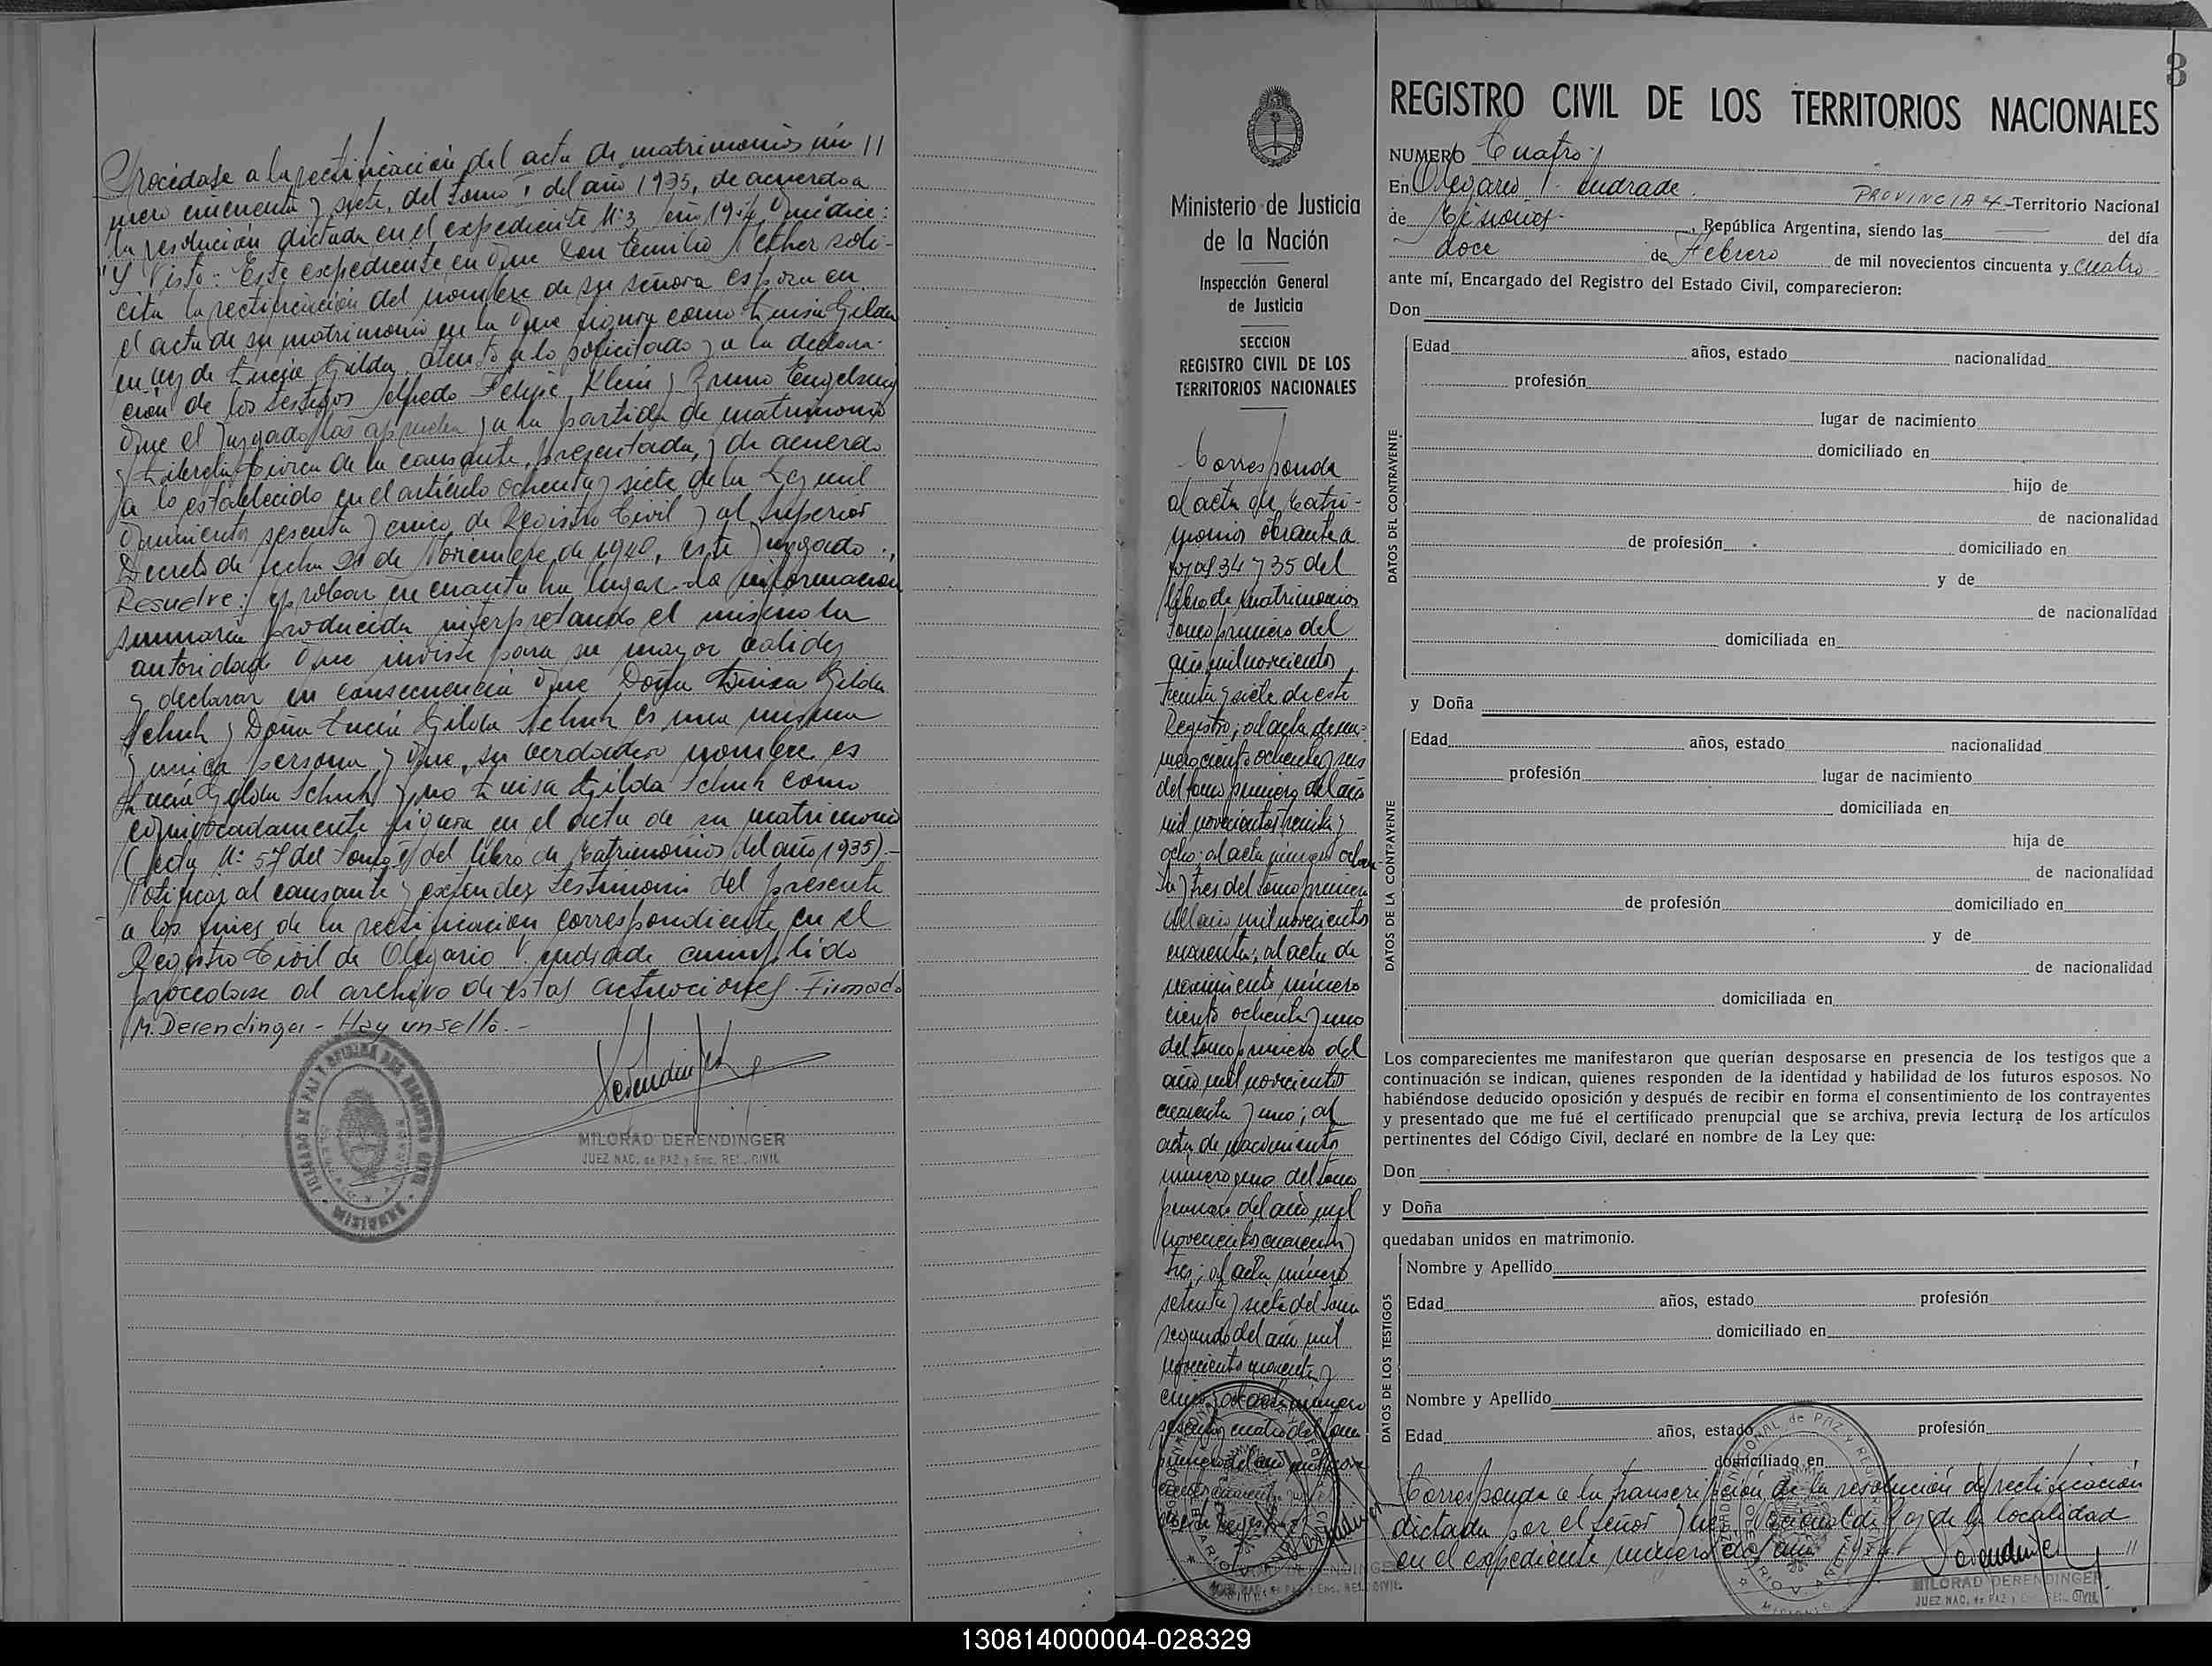 Procédase a la rectificación del acta de matrimonios nú //
mero cincuenta y siete, del tomo I del año 1935, de acuerdo a
la resolución dictada en el expediente N: 3 año 1954 que dice:
"Y Visto: Este expediente en que Don Emilio Nether soli-
cita la rectificación del nombre de su señora esposa en
el acta de su matrimonio en la que figura como Luisa Gilda
en vez de Lucía Gilda, atento a lo solicitado y a la declara-
ción de los testigos Alfredo Felipe Klein y Bruno
que el Juzgado las aprueba y a la partida de matrimonio
y Libreta Cívica de la causante, presentada, y de acuerdo
a lo establecido en el artículo ochenta y siete de la Ley mil
quinientos sesenta y cinco de Registro Civil y al Superior
Decreto de fecha 21 de Noviembre de 1940, este Juzgado.,
Resuelve: aprobar en cuanto ha lugar la información
sumaria producida interpretando el mismo la
autoridad que inviste para su mayor validez
y declarar en consecuencia que Doña Luisa Gilda
Schuh y Doña Lucía Gilda Schuh es una misma
y unica persona y que, su verdadero nombre es
Lucía Gilda Schuh y no Luisa Gilda Schuh como
equivocadamente figura en el acta de su matrimonio
(acta N: 57 del Tomo del libro de Matrimonios del año 1935).-
Notificar al causante y extender testimonio del presente
a los fines de la rectificación correspondiente en el
Registro Civil de Olegario V. Andrade cumplido
procedase al archivo de estas actuaciones. Firmado
M. Derendinger - Hay un sello. -
MILORAD DERENDINGER
JUEZ NAC. de PAZ y Enc. REG. CIVIL
MISIONES
3
Ministerio de Justicia
de la Nación
Inspección General
de Justicia
SECCION
REGISTRO CIVIL DE LOS
TERRITORIOS NACIONALES
Corresponde
al acta de Matri-
monios obrante a
fojas 34 y 35 del
libro de Matrimonios
Tomo primero del
año mil novecientos
treinta y siete de este
Registro; al acta de nú-
mero ciento ochenta y seis
del tomo primero del año
mil novecientos treinta y
ocho; al acta número ochen-
ta y tres del tomo primero
del año mil novecientos
cuarenta; al acta de
nacimiento número
ciento ochenta y uno
del tomo primero del
año mil novecientos
cuarenta y uno; al
acta de nacimiento
número uno del tomo
primero del año mil
novecientos cuarenta y
tres; al acta número
setenta y siete del tomo
segundo del año mil
novecientos cuarenta y
cinco; al acta número
sesenta y cuatro del tomo
primero del año mil nove
REGISTRO CIVIL DE LOS TERRITORIOS NACIONALES
NUMERO Cuatro
En Olegario V. Andrade. PROVINCIA -Territorio Nacional
de Misiones , República Argentina, siendo las del día
doce de Febrero de mil novecientos cincuenta y cuatro
ante mí, Encargado del Registro del Estado Civil, comparecieron:
Don
DATOS DEL CONTRAYENTE
Edad años, estado nacionalidad
profesión
lugar de nacimiento
domiciliado en
hijo de
de nacionalidad
de profesión domiciliado en
y de
de nacionalidad
domiciliada en
y Doña
DATOS DE LA CONTRAYENTE
Edad años, estado nacionalidad
profesión lugar de nacimiento
domiciliada en
hija de
de nacionalidad
de profesión domiciliado en
y de
de nacionalidad
domiciliada en
Los comparecientes me manifestaron que querían desposarse en presencia de los testigos que a
continuación se indican, quienes responden de la identidad y habilidad de los futuros esposos. No
habiéndose deducido oposición y después de recibir en forma el consentimiento de los contrayentes
y presentado que me fué el certificado prenupcial que se archiva, previa lectura de los artículos
pertinentes del Código Civil, declaré en nombre de la Ley que:
Don
y Doña
quedaban unidos en matrimonio.
DATOS DE LOS TESTIGOS
Nombre y Apellido
Edad años, estado profesión
domiciliado en
Nombre y Apellido
Edad años, estado profesión
domiciliado en
Corresponde a la transcripción de la resolución de rectificación
dictada por el señor Juez Nacional de Paz de la localidad
en el expediente número año 1954 //
MILORAD DERENDINGER
JUEZ NAC. de PAZ y Enc. REG. CIVIL
130814000004-028329